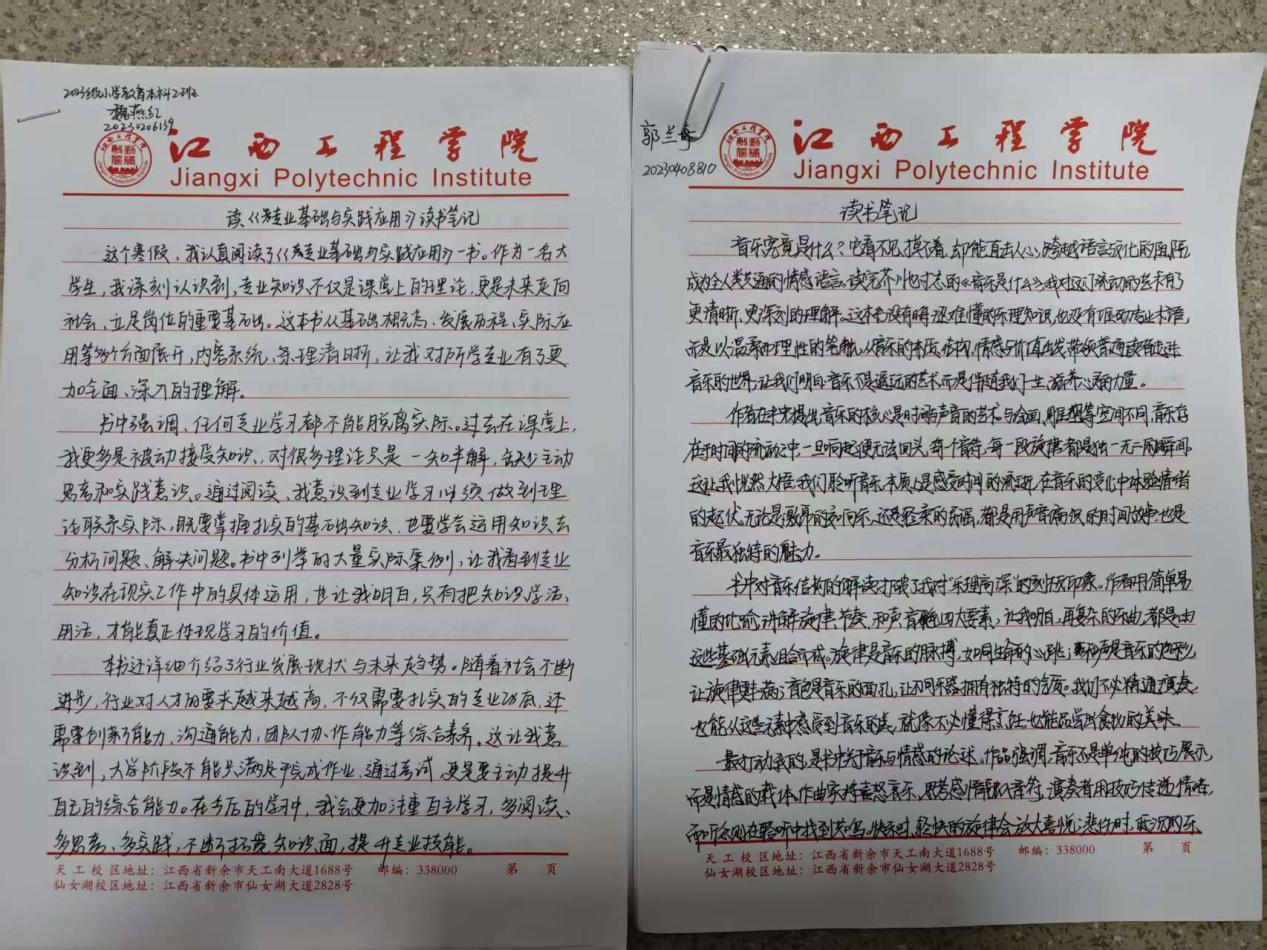 2023级小学教育本科2班
魏燕红
20230206139
江西工程学院
Jiangxi Polytechnic Institute
读《专业基础与实践应用》读书笔记
这个寒假,我认真阅读了《专业基础与实践应用》一书。作为一名大
学生,我深刻认识到,专业知识不仅是课堂上的理论,更是未来走向
社会、立足岗位的重要基础。这本书从基础概念、发展历程、实际应
用等多个方面展开,内容系统、条理清晰,让我对所学专业有了更
加全面、深入的理解。
书中强调,任何专业学习都不能脱离实际。过去在课堂上,
我更多是被动接受知识,对很多理论只是一知半解,缺少主动
思考和实践意识。通过阅读,我意识到专业学习必须做到理
论联系实际,既要掌握扎实的基础知识、也要学会运用知识去
分析问题、解决问题。书中列举的大量实际案例,让我看到专业
知识在现实工作中的具体运用,也让我明白,只有把知识学活、
用活,才能真正体现学习的价值。
本书还详细介绍了行业发展现状与未来趋势。随着社会不断
进步,行业对人才的要求越来越高,不仅需要扎实的专业功底,还
需要创新能力、沟通能力,团队协作能力等综合素养。这让我意
识到,大学阶段不能只满足于完成作业、通过考试,更是要主动提升
自己的综合能力。在今后的学习中,我会更加注重自主学习,多阅读、
多思考、多实践,不断拓宽知识面,提升专业技能。
天工校区地址:江西省新余市天工南大道1688号 邮编:338000 第 页
仙女湖校区地址:江西省新余市仙女湖大道2828号
郭兰
20230408810
江西工程学院
Jiangxi Polytechnic Institute
读书笔记
音乐究竟是什么?它看不见、摸不着,却能直击人心,跨越语言文化的阻隔
成为全人类共通的情感语言。读完乔 的《音乐是什么》我对这门流动的艺术有了
更清晰、更深刻的理解。这本书没有晦涩难懂的乐理知识,也没有 专业术语,
而是以温柔而理性的笔触,从音乐的本质、结构、情感与价值出发,带领普通读者走进
音乐的世界,让我们明白音乐不是遥远的艺术而是伴随我们一生、滋养心灵的力量。
作者在书中提出音乐的核心是时间与声音的艺术与绘画、雕塑等空间不同,音乐存
在于时间的流动之中一旦响起便无法回头,每个音符、每一段旋律都是独一无二的瞬间。
这让我恍然大悟:我们聆听音乐,本质上是感受时间的流动,在音乐的变化中体验情绪
的起伏,无论是激昂的交响乐,还是轻柔的民谣,都是用声音编织的时间故事,也是
音乐最独特的魅力。
书中对音乐结构的解读打破了我对“乐理高深”的刻板印象。作者用简单易
懂的比喻,讲解旋律、节奏、和声、音色四大要素,让我明白,再复杂的乐曲,都是由
这些基础元素组合而成。旋律是音乐的脉搏,如同生命的心跳;和声是音乐的色彩,
让旋律更丰满;音色是音乐的面孔,让不同乐器拥有独特的气质。我们不必精通演奏,
也能从这些元素中感受到音乐的美,就像不必懂得烹饪,也能品尝出食物的美味。
最打动我的,是书中关于音乐与情感的论述。作品强调,音乐不是单纯的技巧展示,
而是情感的载体。作曲家将喜怒哀乐、思考感悟融入音符,演奏者用技巧传递情绪,
而听众则在聆听中找到共鸣。快乐时,轻快的旋律会放大喜悦;悲伤时,低沉的乐
天工校区地址:江西省新余市天工南大道1688号 邮编:338000 第 页
仙女湖校区地址:江西省新余市仙女湖大道2828号